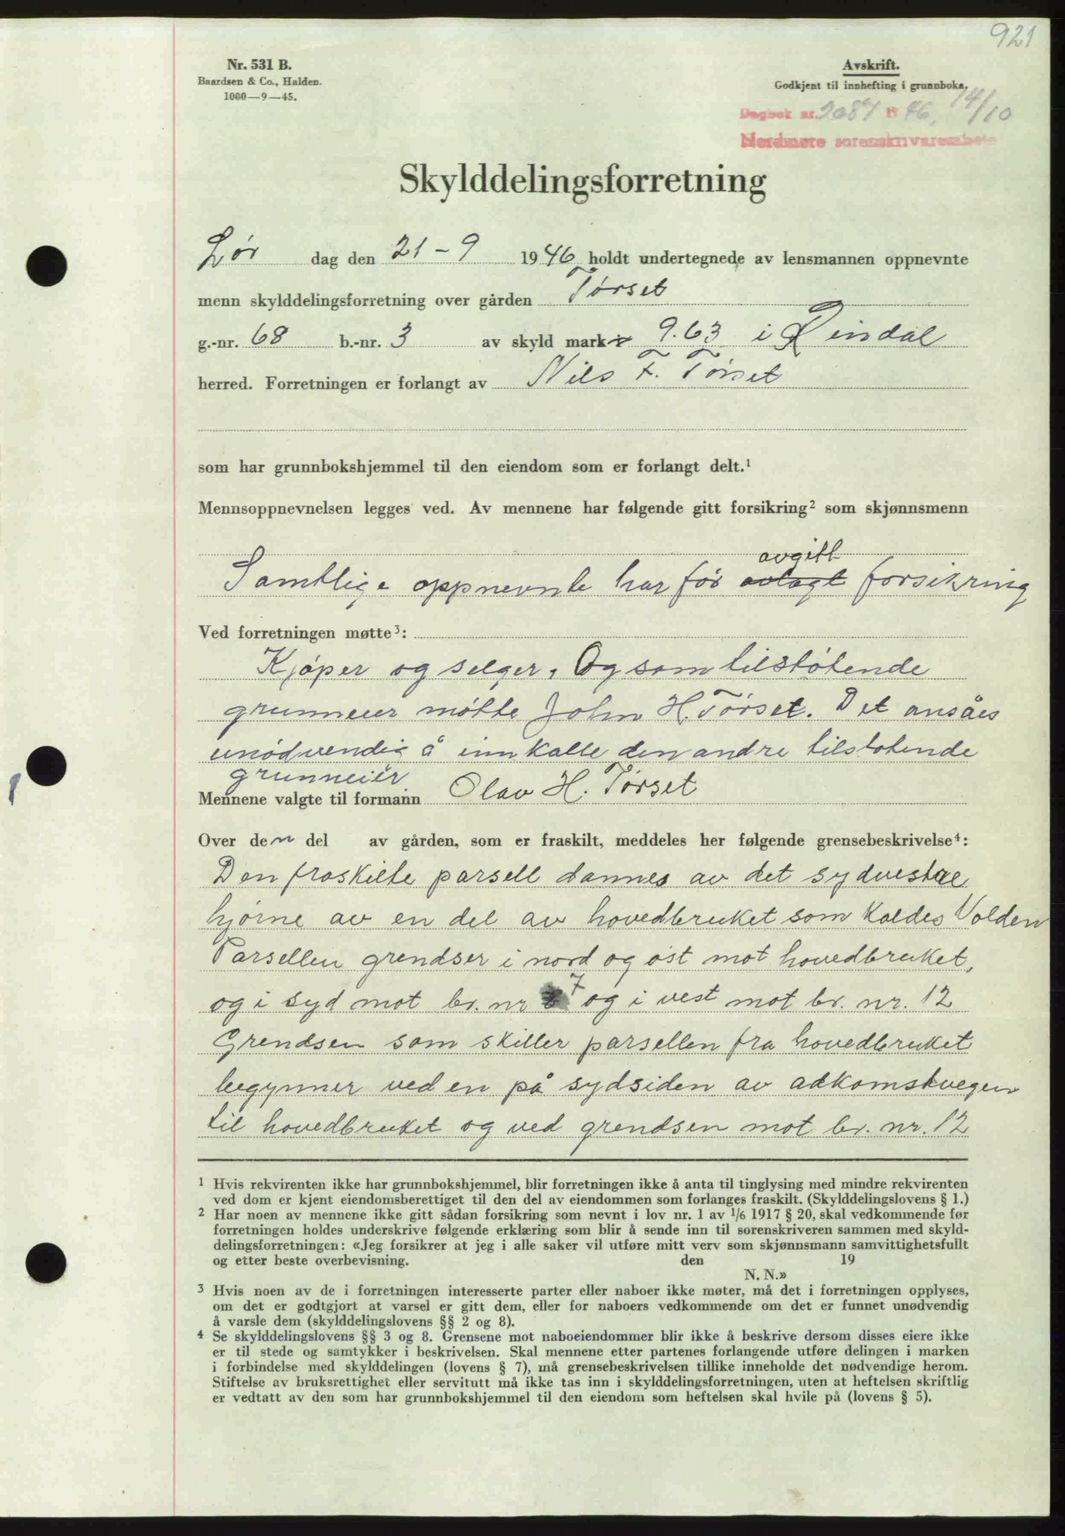 921
Nr. 531 B.
Baardsen & Co., Halden.
1000—9—45.
Avskrift.
Godkjent til innhefting i grunnboka.
Dagbok nr. 2087 19 46, 14/10
Nordmøre sorenskriverembete
Skylddelingsforretning
Lør dag den 21-9 1946 holdt undertegnede av lensmannen oppnevnte
menn skylddelingsforretning over gården Tørset
g.-nr. 68 b.-nr. 3 av skyld mark 9.63 i Rindal
herred. Forretningen er forlangt av Nils F. Tørset
som har grunnbokshjemmel til den eiendom som er forlangt delt.¹
Mennsoppnevnelsen legges ved. Av mennene har følgende gitt forsikring² som skjønnsmenn
avgitt
Samtlige oppnevnte har før avlagt forsikring
Ved forretningen møtte³:
Kjøper og selger, Og som tilstøtende
grunneier møtte John H. Tørset. Det ansåes
unødvendig å innkalle den andre tilstøtende
grunneier
Mennene valgte til formann Olav H. Tørset
Over den del av gården, som er fraskilt, meddeles her følgende grensebeskrivelse⁴:
Den fraskilte parsell dannes av det sydvestre
hjørne av en del av hovedbruket som kaldes Volden
Parsellen grendser i nord og øst mot hovedbruket,
og i syd mot br. nr 7 og i vest mot br. nr. 12
Grendsen som skiller parsellen fra hovedbruket
begynner ved en på sydsiden av adkomstvegen
til hovedbruket og ved grendsen mot br. nr. 12
¹ Hvis rekvirenten ikke har grunnbokshjemmel, blir forretningen ikke å anta til tinglysing med mindre rekvirenten
ved dom er kjent eiendomsberettiget til den del av eiendommen som forlanges fraskilt. (Skylddelingslovens § 1.)
² Har noen av mennene ikke gitt sådan forsikring som nevnt i lov nr. 1 av 1/6 1917 § 20, skal vedkommende før
forretningen holdes underskrive følgende erklæring som blir å sende inn til sorenskriveren sammen med skyld-
delingsforretningen: «Jeg forsikrer at jeg i alle saker vil utføre mitt verv som skjønnsmann samvittighetsfullt
og etter beste overbevisning. den 19
N. N.»
³ Hvis noen av de i forretningen interesserte parter eller naboer ikke møter, må det i forretningen opplyses,
om det er godtgjort at varsel er gitt dem, eller for naboers vedkommende om det er funnet unødvendig
å varsle dem (skylddelingslovens §§ 2 og 8).
⁴ Se skylddelingslovens §§ 3 og 8. Grensene mot naboeiendommer blir ikke å beskrive dersom disses eiere ikke
er til stede og samtykker i beskrivelsen. Skal mennene etter partenes forlangende utføre delingen i marken
i forbindelse med skylddelingen (lovens § 7), må grensebeskrivelsen tillike inneholde det nødvendige herom.
Stiftelse av bruksrettighet eller servitutt må ikke tas inn i skylddelingsforretningen, uten at heftelsen skriftlig
er vedtatt av den som har grunnbokshjemmel til den eiendom som heftelsen skal hvile på (lovens § 5).